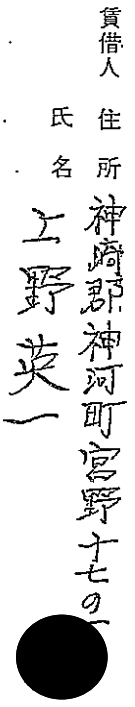 賃借人 住所 神崎郡神河町宮野十七の一
氏名 上野英一